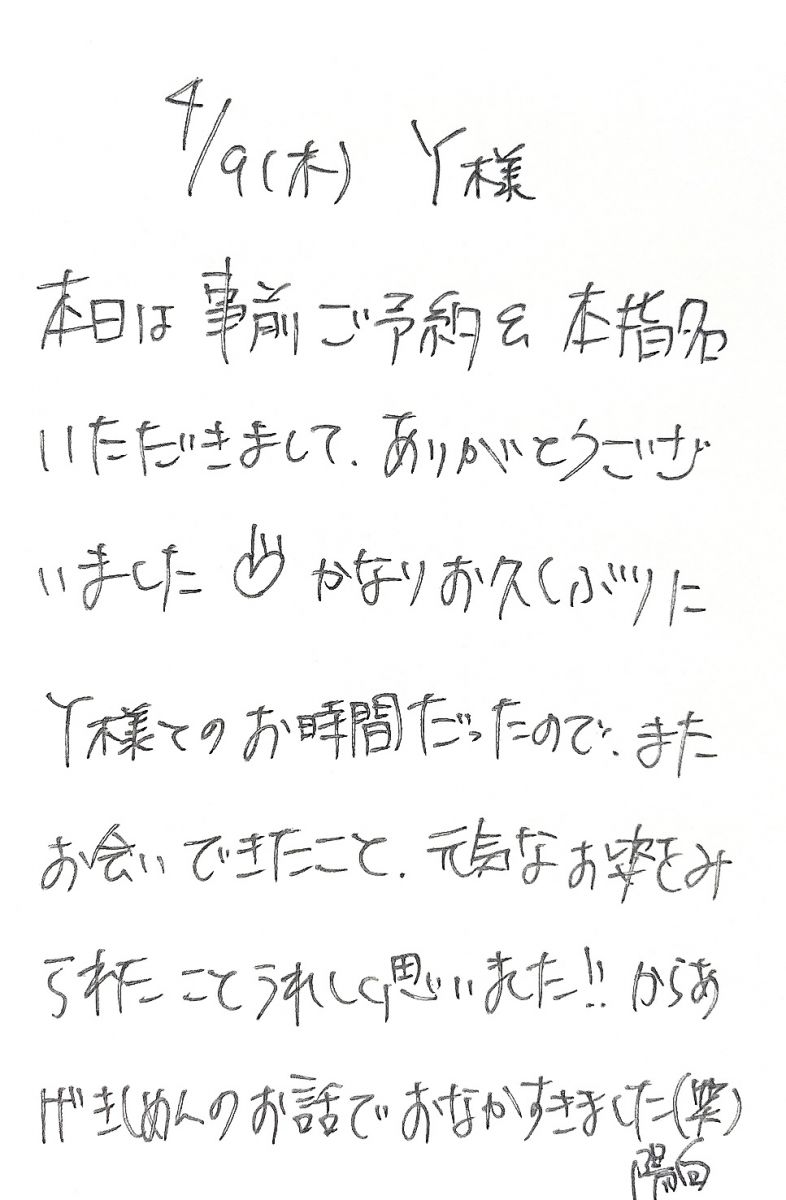 4/9(木) Y様
本日は事前ご予約&本指名
いただきまして、ありがとうござ
いました かなりお久しぶりに
Y様とのお時間だったので、また
お会いできたこと、元気なお姿をみ
られたことうれしく思いました!! からあ
げきしめんのお話でおなかすきました(笑)
陽向